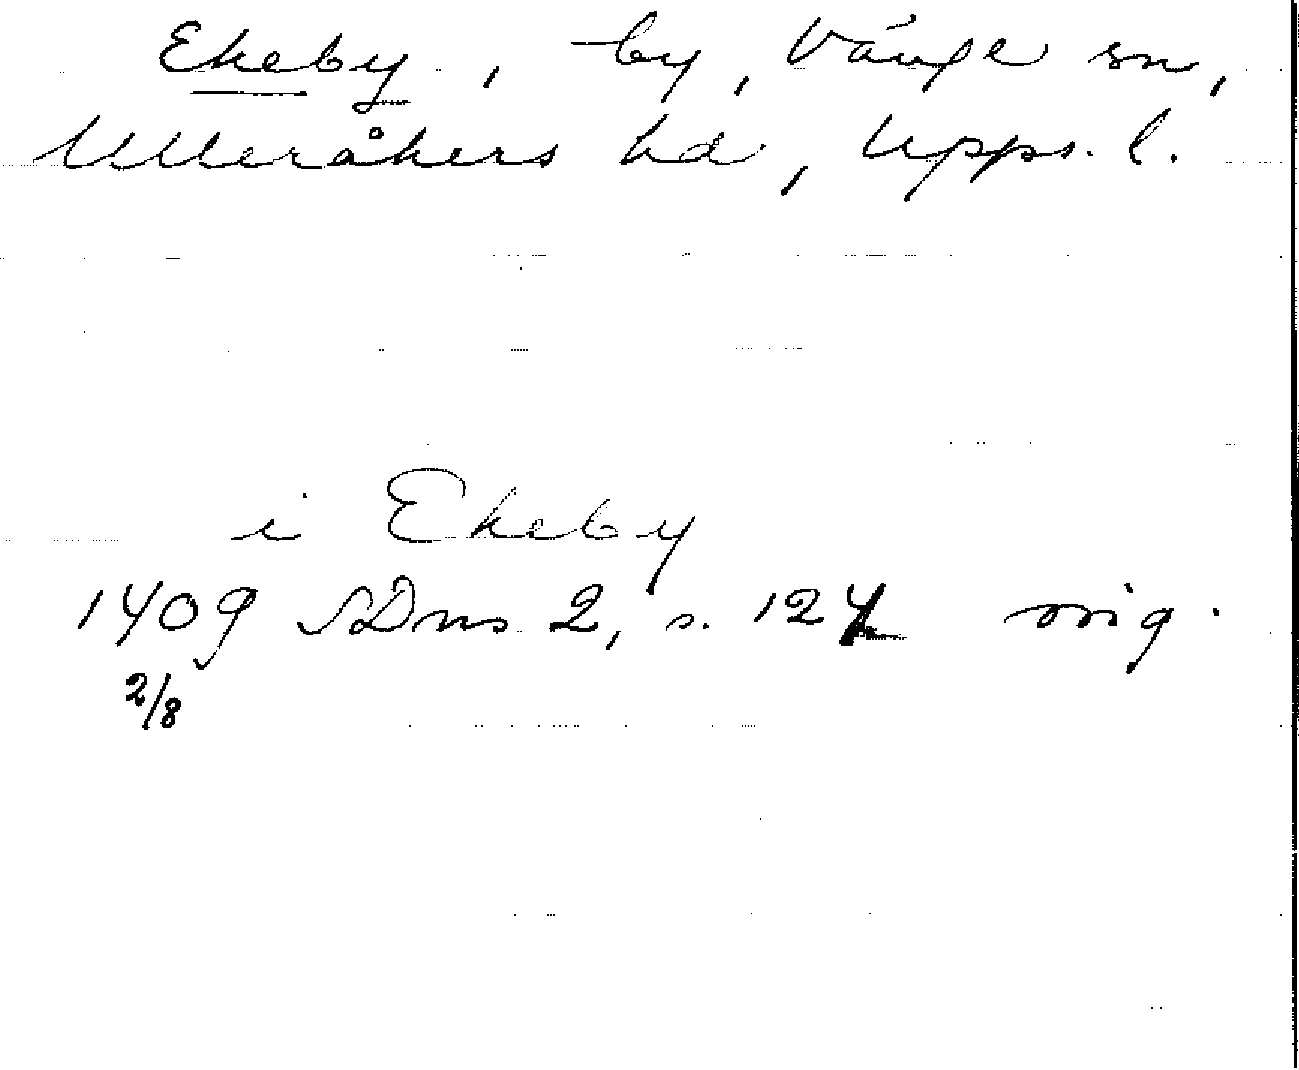 Ekeby, by, Vänge sn,
Ulleråkers hd, Upps. l.
i Ekeby
1409 SDns 2, s. 124 orig.
2/8